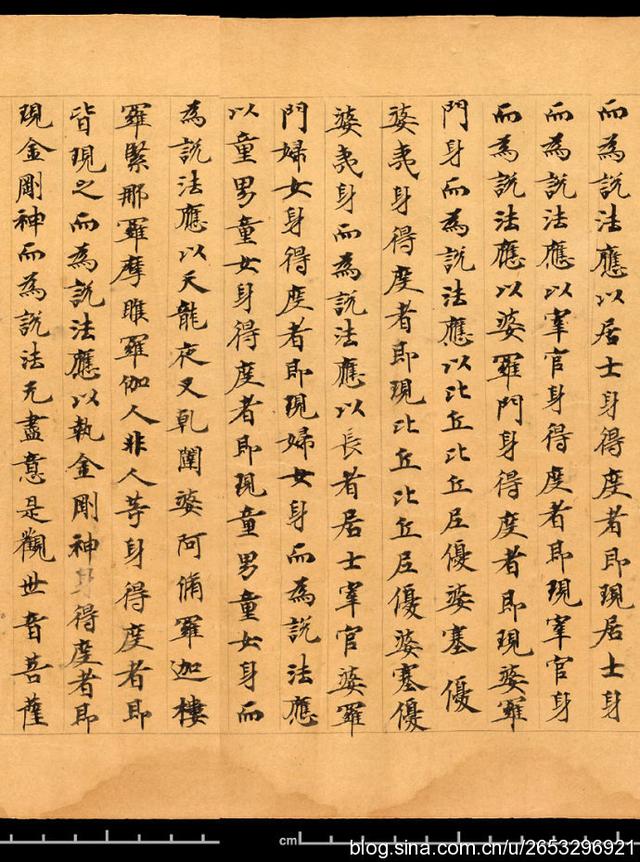 而為說法應以居士身得度者即現居士身
而為說法應以宰官身得度者即現宰官身
而為說法應以婆羅門身得度者即現婆羅
門身而為說法應以比丘比丘尼優婆塞優
婆夷身得度者即現比丘比丘尼優婆塞優
婆夷身而為說法應以長者居士宰官婆羅
門婦女身得度者即現婦女身而為說法應
以童男童女身得度者即現童男童女身而
為說法應以天龍夜叉乹闥婆阿脩羅迦樓
羅緊那羅摩睺羅伽人非人等身得度者即
皆現之而為說法應以執金剛神身得度者即
現金剛神而為說法无盡意是觀世音菩薩
cm
blog.sina.com.cn/u/2653296921